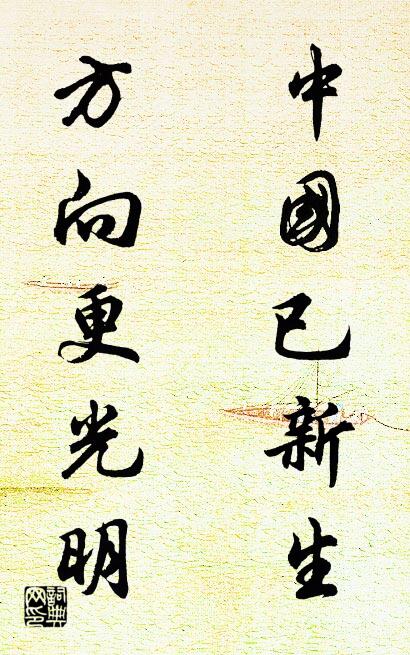 中國已新生
方向更光明
詞典网印